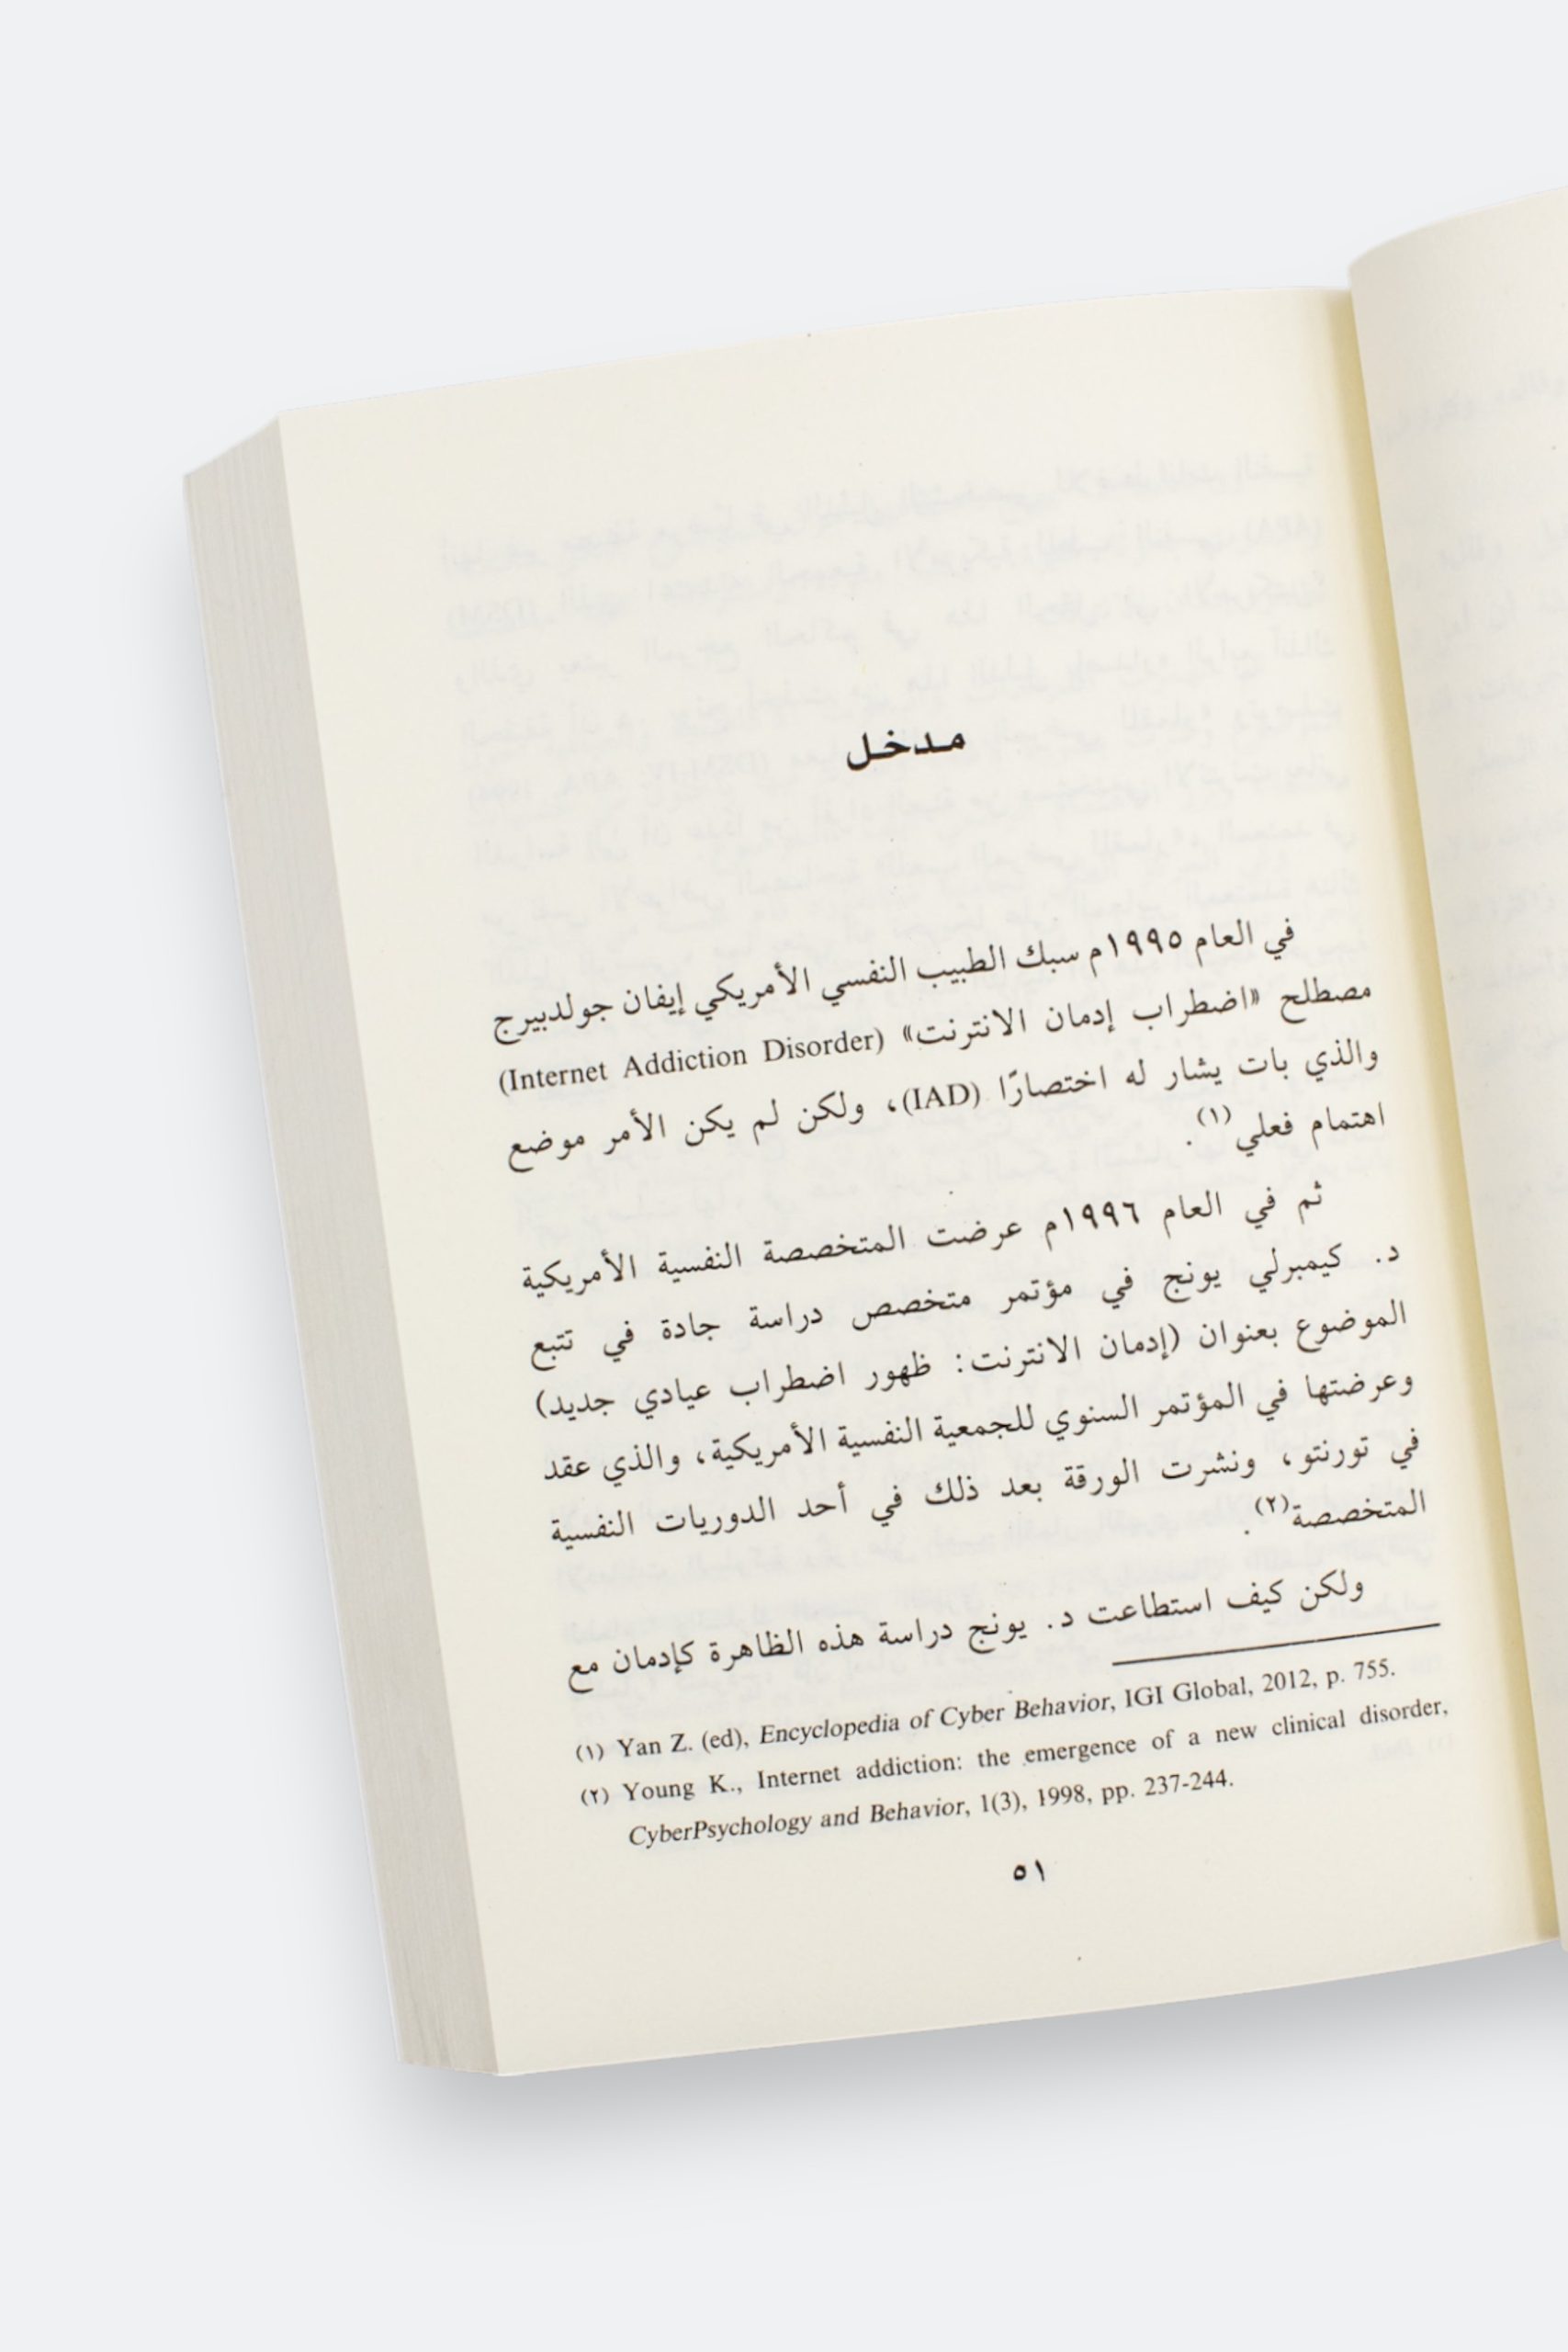 مدخل
في العام ١٩٩٥م سبك الطبيب النفسي الأمريكي إيفان جولدبيرج
مصطلح «اضطراب إدمان الانترنت» (Internet Addiction Disorder)
والذي بات يشار له اختصارًا (IAD)، ولكن لم يكن الأمر موضع
اهتمام فعلي(١).
ثم في العام ١٩٩٦م عرضت المتخصصة النفسية الأمريكية
د. كيمبرلي يونج في مؤتمر متخصص دراسة جادة في تتبع
الموضوع بعنوان (إدمان الانترنت: ظهور اضطراب عيادي جديد)
وعرضتها في المؤتمر السنوي للجمعية النفسية الأمريكية، والذي عقد
في تورنتو، ونشرت الورقة بعد ذلك في أحد الدوريات النفسية
المتخصصة(٢).
ولكن كيف استطاعت د. يونج دراسة هذه الظاهرة كإدمان مع
(١) Yan Z. (ed), Encyclopedia of Cyber Behavior, IGI Global, 2012, p. 755.
(٢) Young K., Internet addiction: the emergence of a new clinical disorder,
CyberPsychology and Behavior, 1(3), 1998, pp. 237-244.
٥١